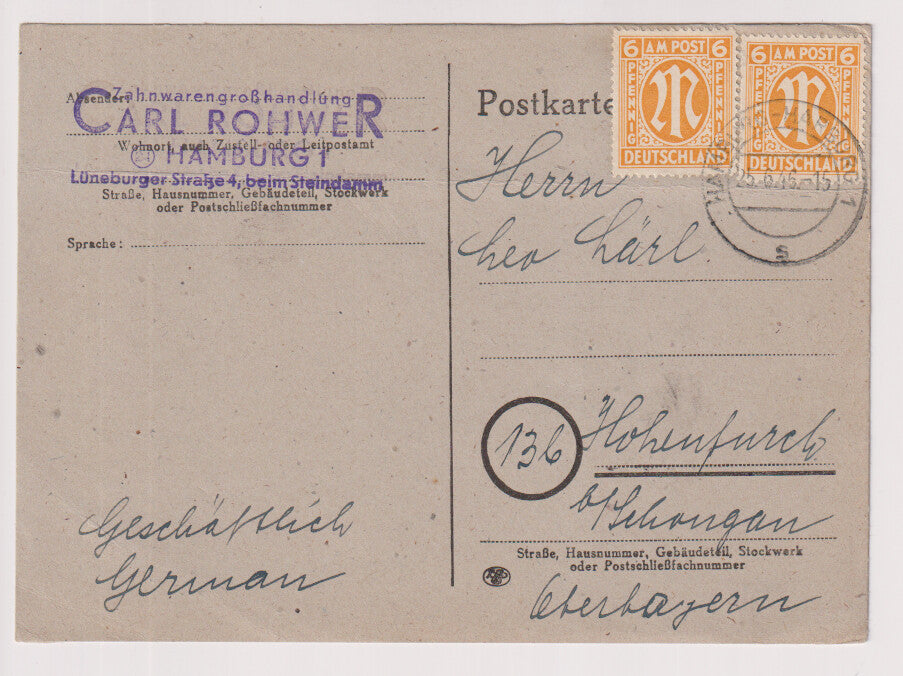 Absender: Zahnwarengroßhandlung
CARL ROHWER
Wohnort, auch Zustell- oder Leitpostamt
(24) HAMBURG 1
Lüneburger Straße 4, beim Steindamm
Straße, Hausnummer, Gebäudeteil, Stockwerk
oder Postschließfachnummer
Sprache:
Geschäftlich
German
Postkarte
6 AM POST 6
PFENNIG PFENNIG
DEUTSCHLAND
6 AM POST 6
PFENNIG PFENNIG
DEUTSCHLAND
1
s
Herrn
Leo Lärl.
13b Hohenfurch
b/Schongau
Straße, Hausnummer, Gebäudeteil, Stockwerk
oder Postschließfachnummer
Oberbayern